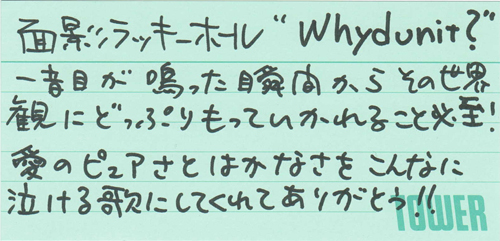 面影ラッキーホール "Whydunit?"
一音目が鳴った瞬間からその世界
観にどっぷりもっていかれること必至!
愛のピュアさとはかなさをこんなに
泣ける歌にしてくれてありがとう!!
TOWER